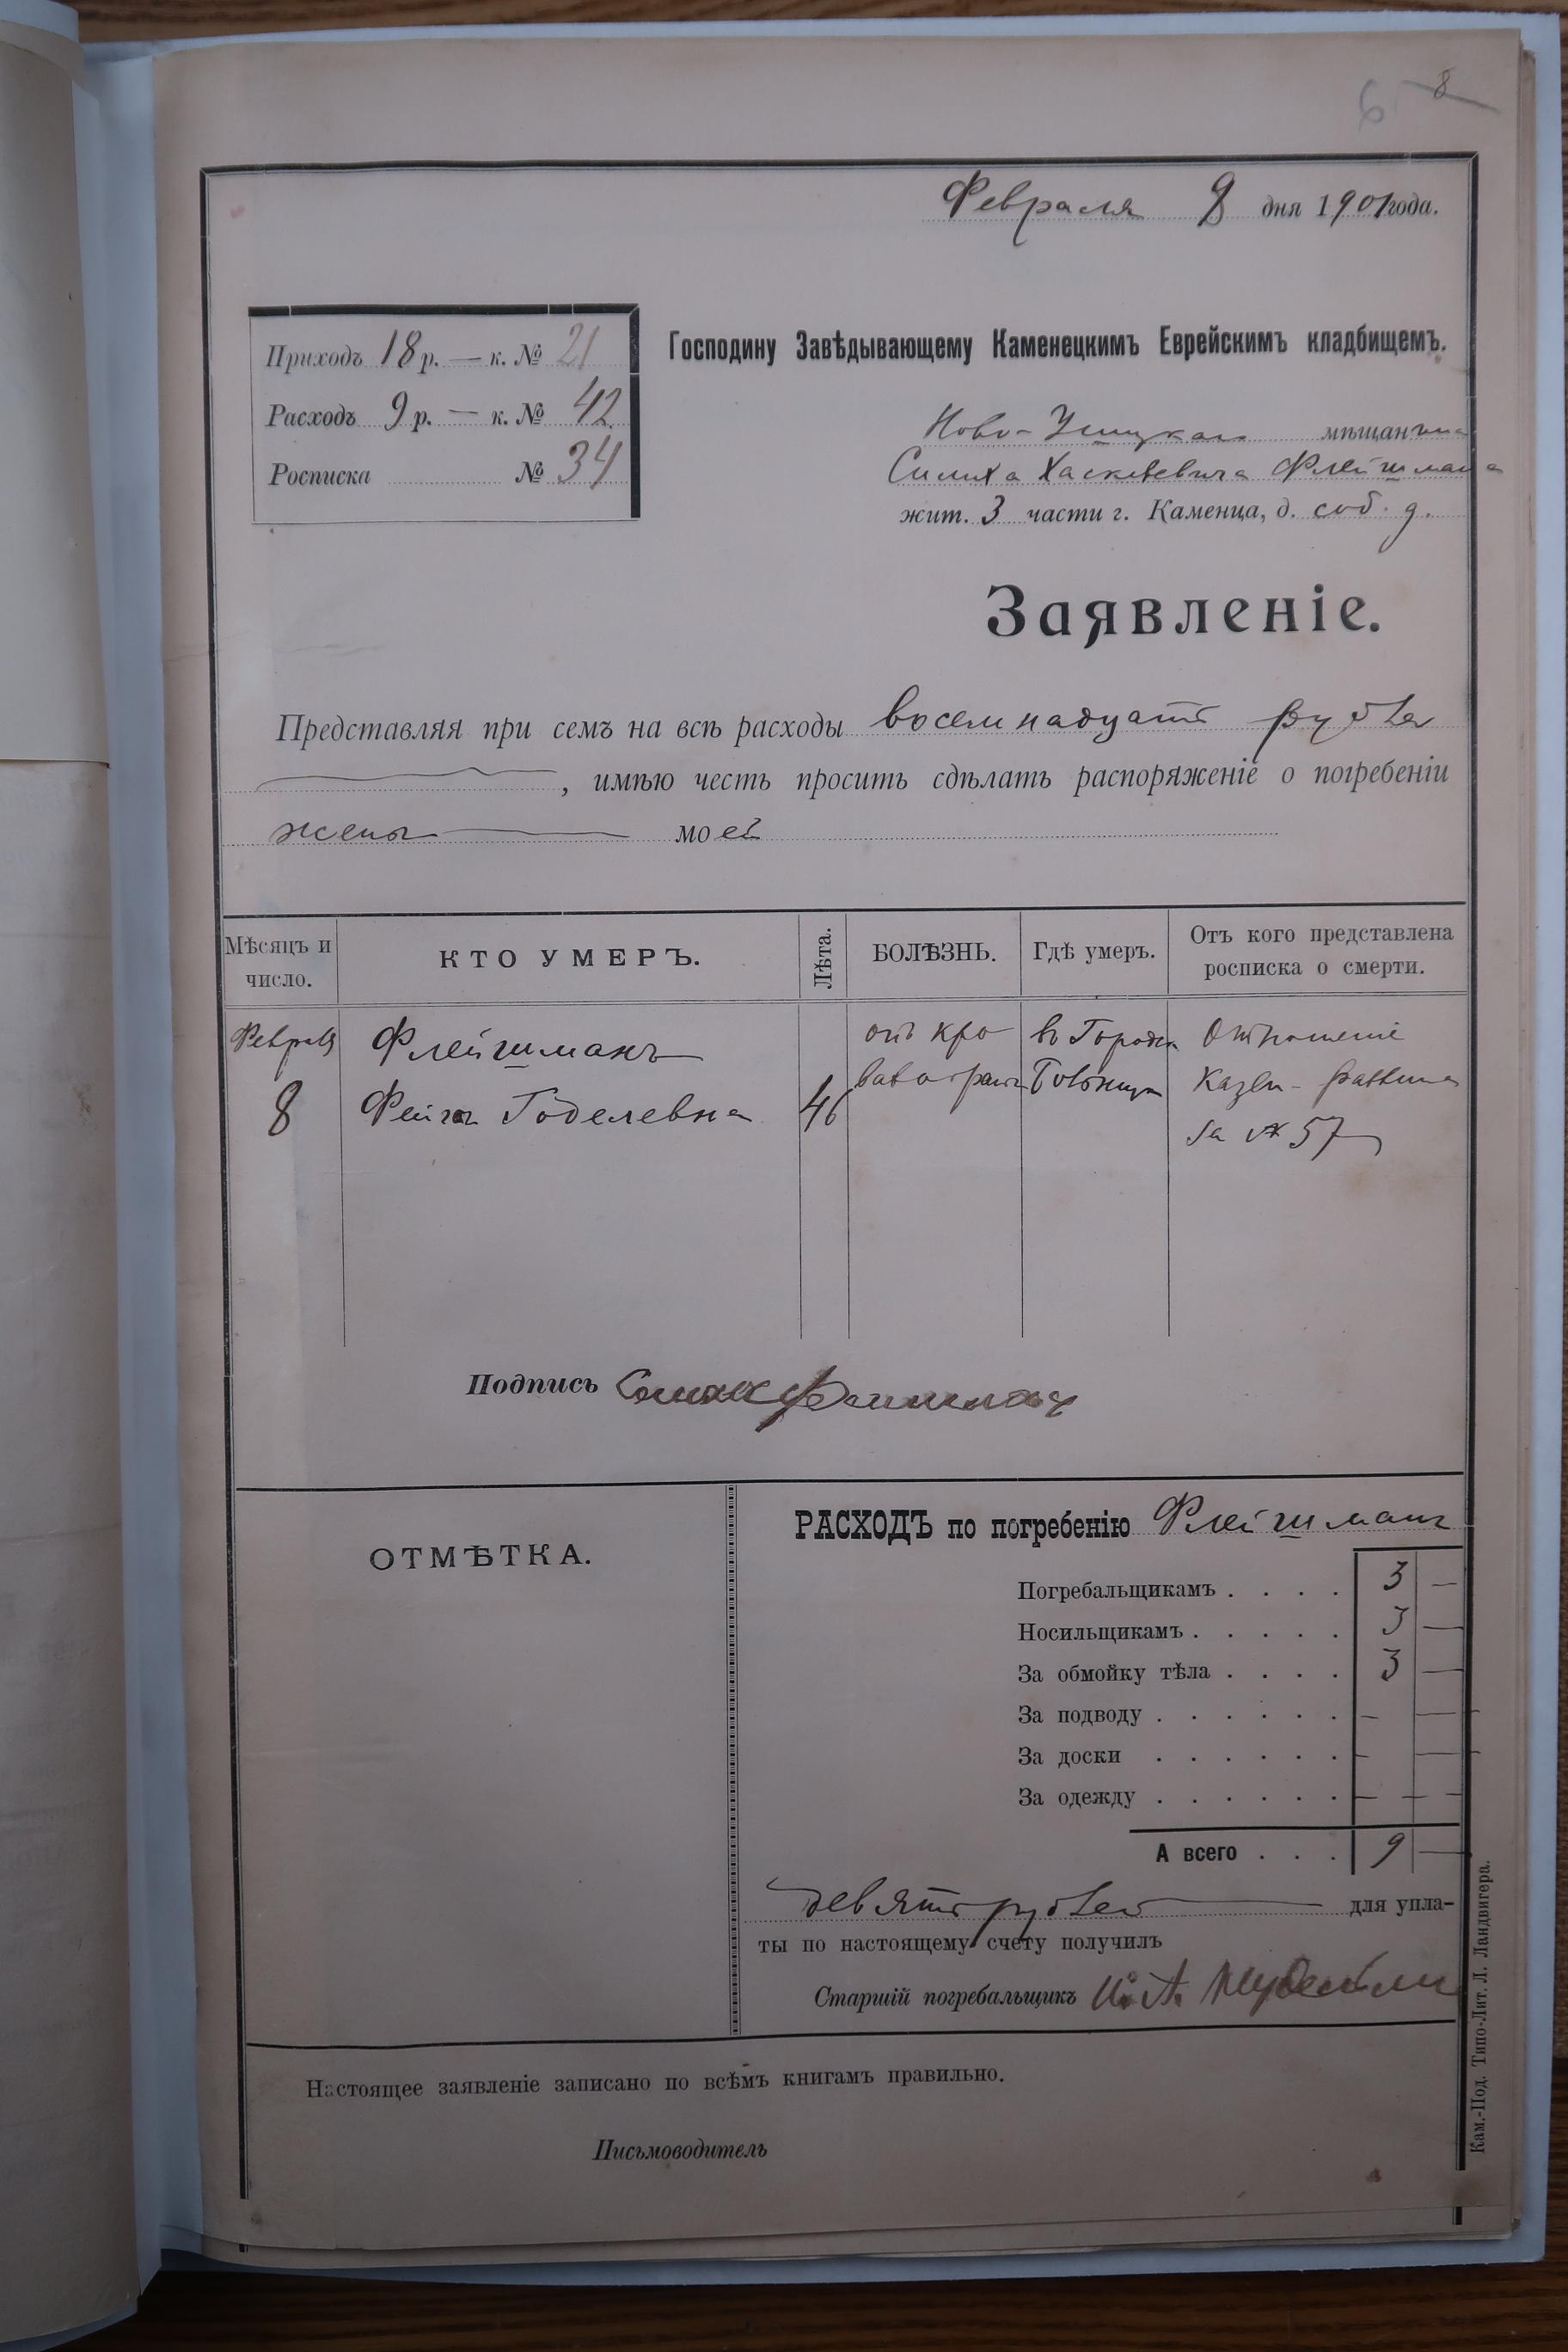 6 8
Февраля 8 дня 1901 года.
Приходъ 18 р. — к. № 21
Расходъ 9 р. — к. № 42
Росписка № 34
Господину Завѣдывающему Каменецкимъ Еврейскимъ кладбищемъ.
Ново-Ушицкаго мѣщанина
Симха Хаскелевича Флейшмана
жит. 3 части г. Каменца, д. соб. д.
Заявленіе.
Представляя при семъ на всѣ расходы восемнадцать рублей
, имѣю честь просить сдѣлать распоряженіе о погребеніи
жены моей
Мѣсяцъ и число.
КТО УМЕРЪ.
Лѣта.
БОЛѢЗНЬ.
Гдѣ умеръ.
Отъ кого представлена росписка о смерти.
Февраля Флейшманъ отъ кро въ Городск Отношеніе
8 Фейга Годелевна 46 Больниц Казен. раввина
за № 57
Подпись Симха Флейшман
ОТМѢТКА.
РАСХОДЪ по погребенію Флейшманъ
Погребальщикамъ . . . . 3 —
Носильщикамъ . . . . . 3 —
За обмойку тѣла . . . . 3 —
За подводу . . . . . . — —
За доски . . . . . . — —
За одежду . . . . . . — —
А всего . . . 9 —
девять рублей для упла-
ты по настоящему счету получилъ
Старшій погребальщикъ
Настоящее заявленіе записано по всѣмъ книгамъ правильно.
Письмоводитель
Кам.-Под. Типо-Лит. Л. Ландвигера.